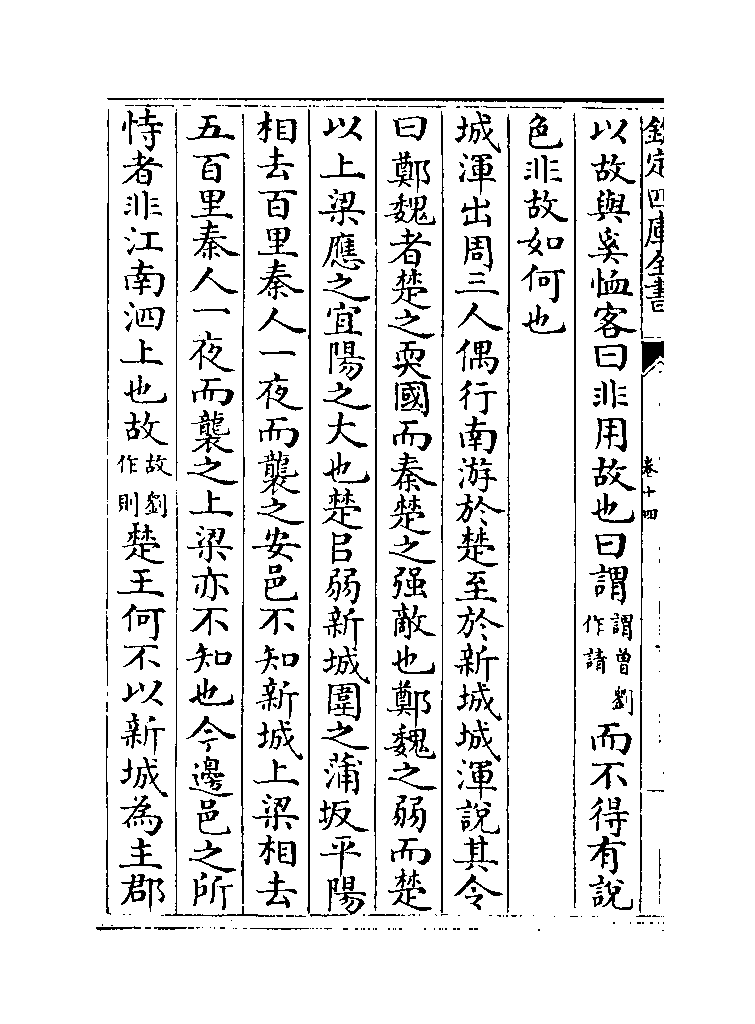 欽定四庫全書
卷十四
以故與奚恤客曰非用故也曰謂謂曾劉作請而不得有說
色非故如何也
城渾出周三人偶行南游於楚至於新城城渾說其令
曰鄭魏者楚之耎國而秦楚之强敵也鄭魏之弱而楚
以上梁應之宜陽之大也楚㠯弱新城圍之蒲坂平陽
相去百里秦人一夜而襲之安邑不知新城上梁相去
五百里秦人一夜而襲之上梁亦不知也今邊邑之所
恃者非江南泗上也故故劉作則楚王何不以新城為主郡